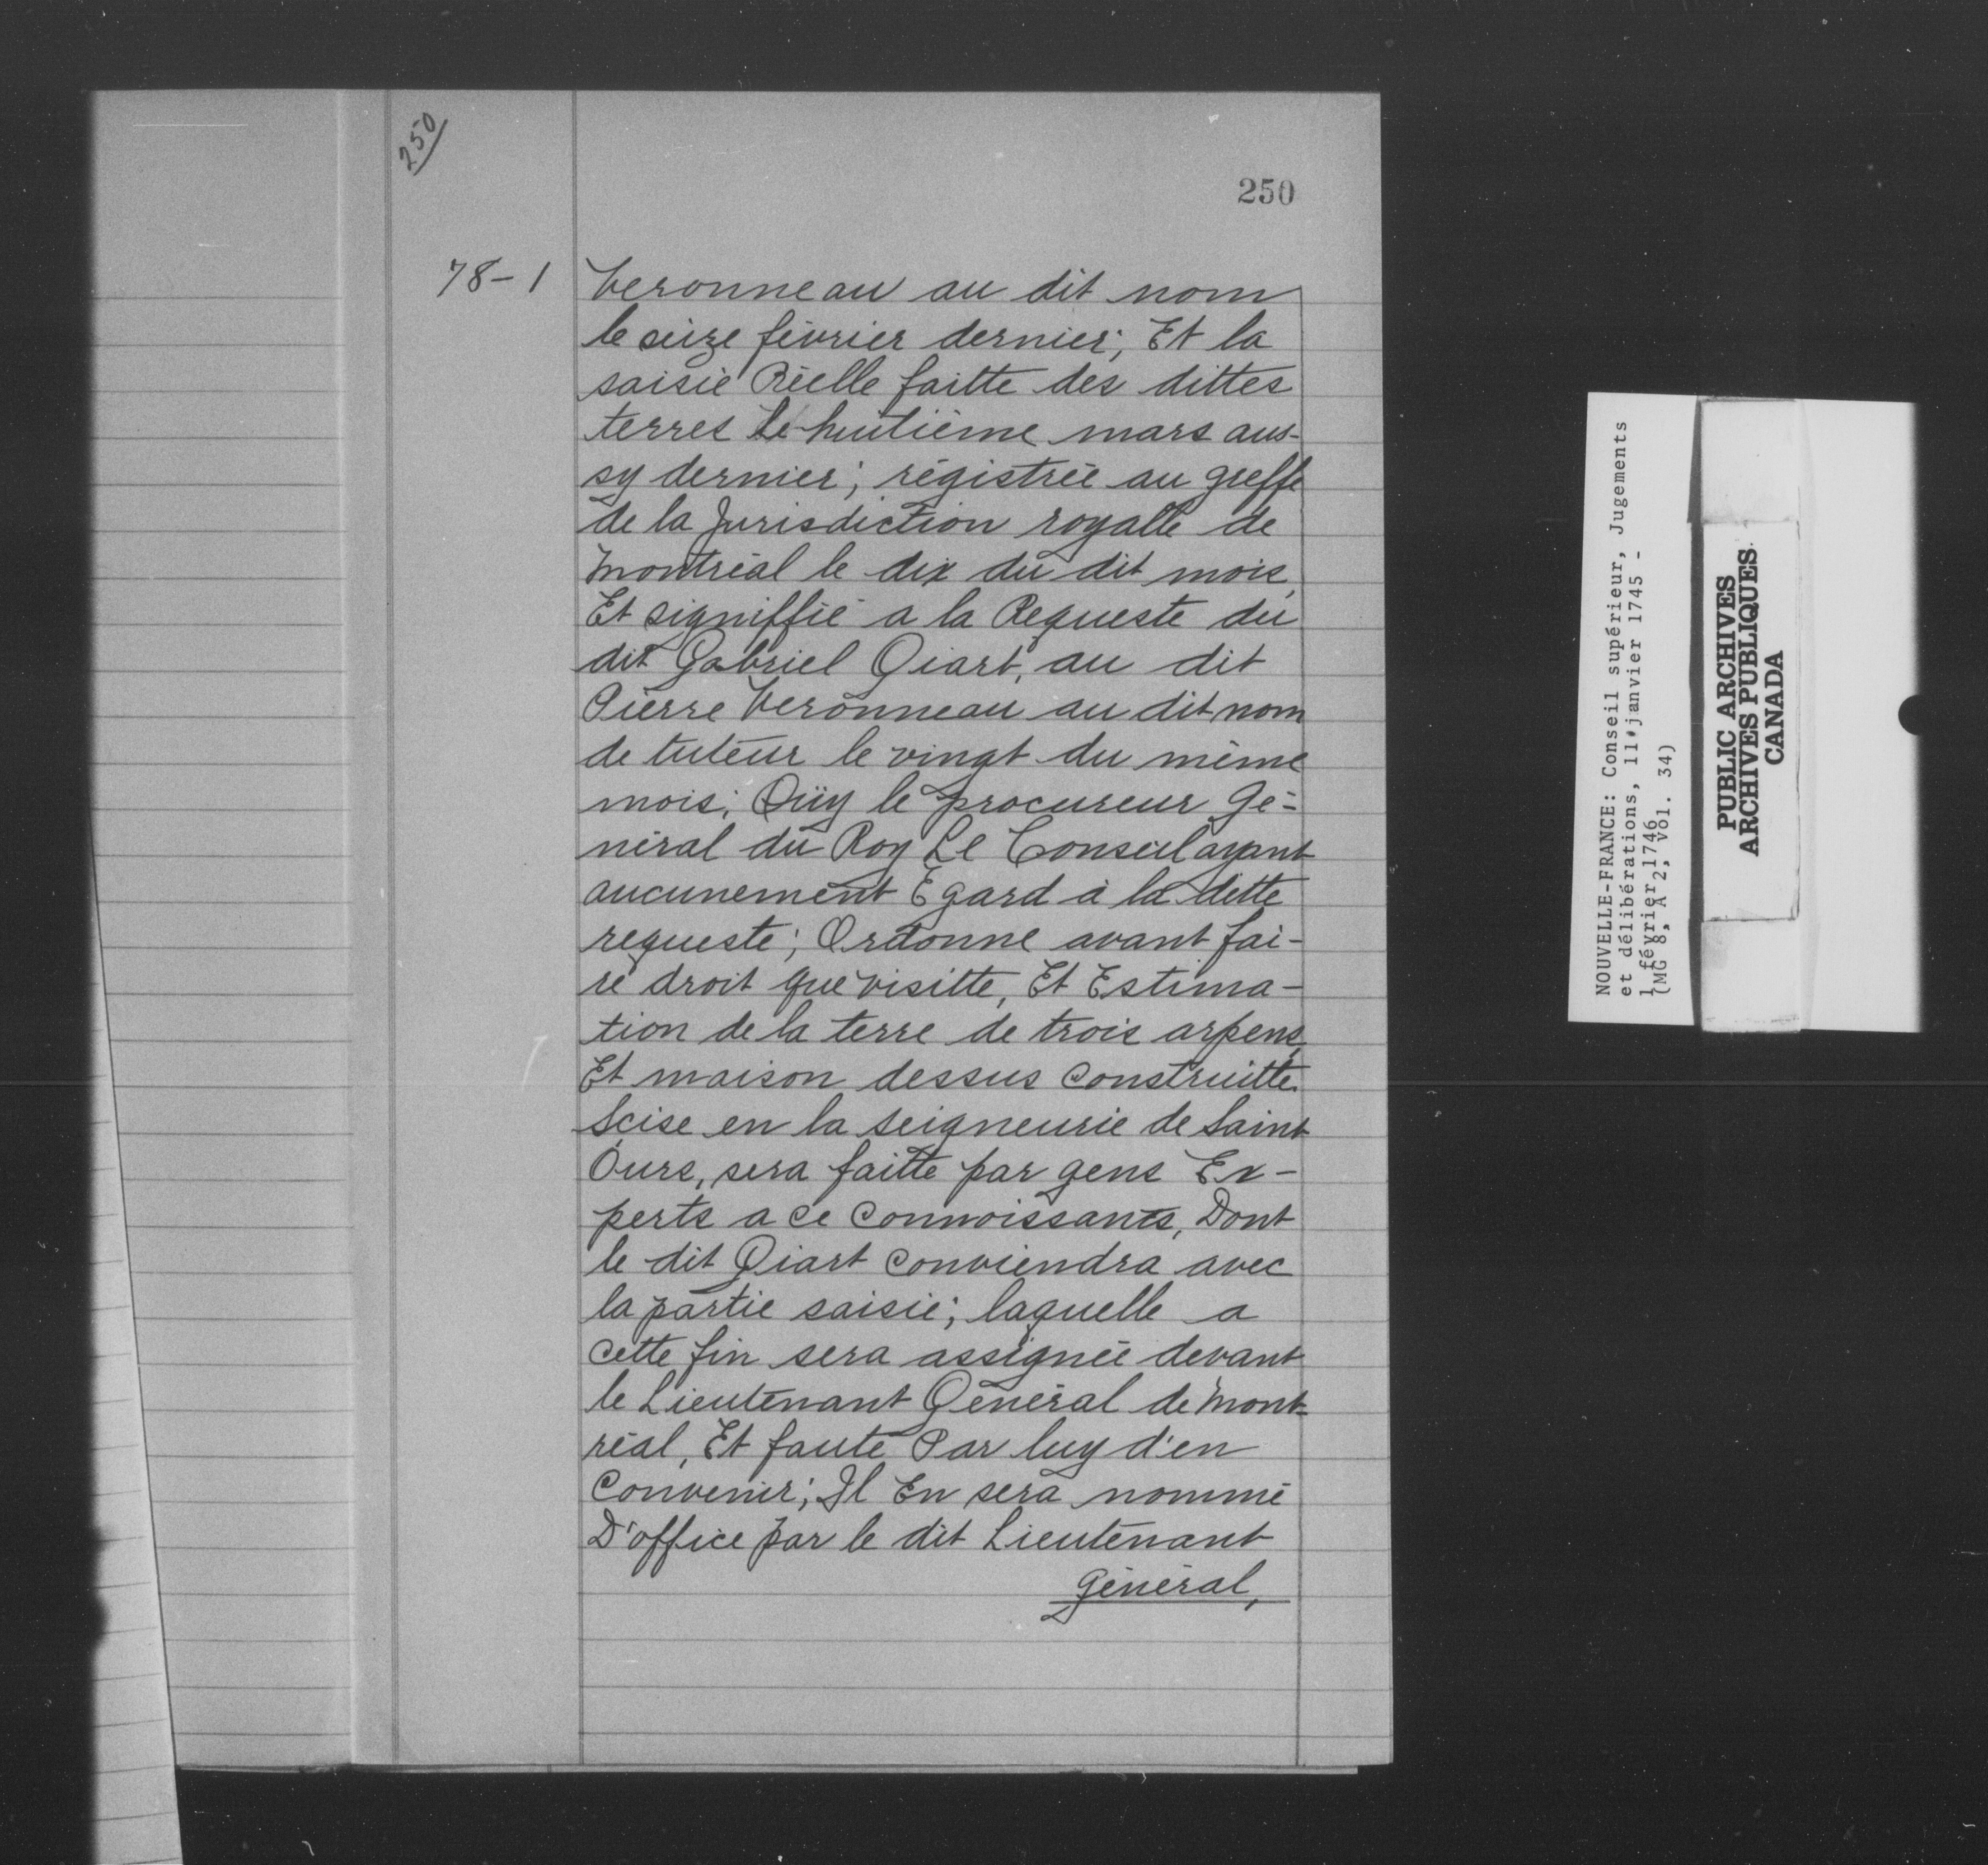 250
250
78-1
Veronneau au dit nom
le seize février dernier; Et la
saisie Réelle faitte des dittes
terres Le huitième mars aus-
sy dernier; régistrée au greffe
de la Jurisdiction royalle de
Montréal le dix du dit mois,
Et signiffié a la Requeste du
dit Gabriel Giart, au dit
Pierre Veronneau au dit nom
de tuteur le vingt du même
mois; Oüy le procureur Gé-
néral du Roy Le Conseil ayant
aucunement Egard à la ditte
requeste; Ordonne avant fai-
re droit que visitte, Et Estima-
tion de la terre de trois arpens,
Et maison dessus construitte
Scise en la seigneurie de Saint
Ours, sera faitte par gens Ex-
perts a ce connoissants, Dont
le dit Giart conviendra avec
la partie saisie; laquelle a
cette fin sera assignée devant
le Lieutenant Général de Mont-
réal, Et faute Par luy d'en
Convenir; Il En sera nommé
D'office par le dit Lieutenant
Général,
NOUVELLE-FRANCE: Conseil supérieur, Jugements
et délibérations, 11 janvier 1745 -
1 février 1746
(MG 8, A 2, vol. 34)
PUBLIC ARCHIVES
ARCHIVES PUBLIQUES
CANADA